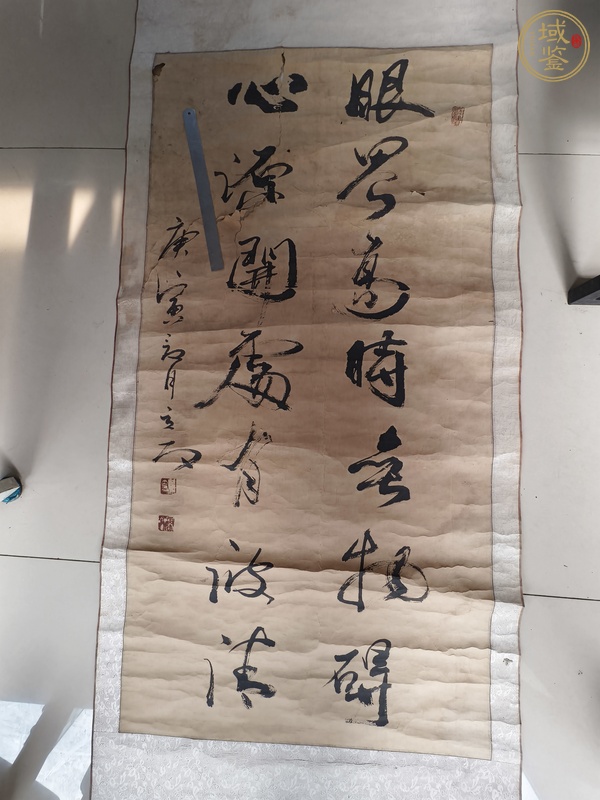 眼界高時無物碍
心源開處有波清
庚寅初月立
域鉴